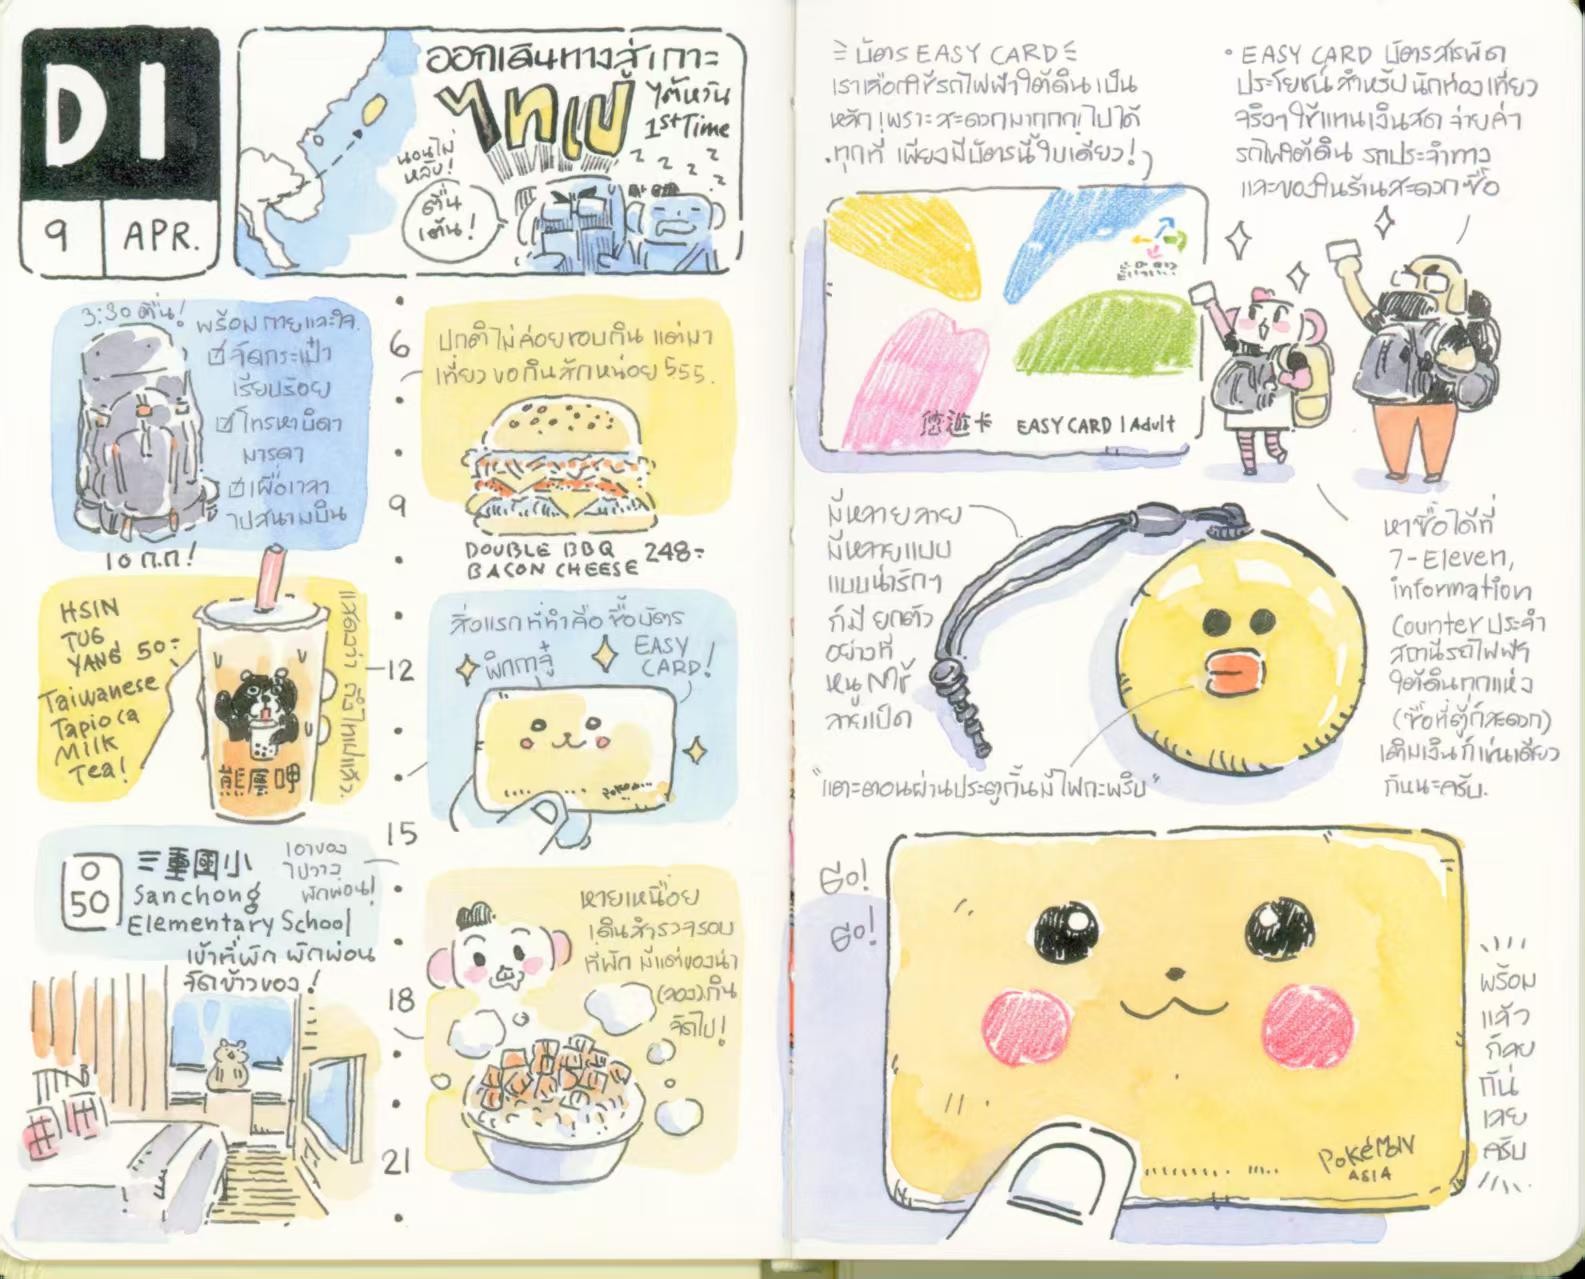 D1
9 APR.
ออกเดินทางสู่เกาะ
ไทเป
ไต้หวัน
1st Time
นอนไม่
หลับ!
ตื่น
เต้น!
z z z z z
3:30 ตื่น!
พร้อมกายและใจ.
จัดกระเป๋า
เรียบร้อย
โทรหาบิดา
มารดา
เผื่อเวลา
ไปสนามบิน
10 ก.ก!
6
9
12
15
18
21
ปกติไม่ค่อยชอบกิน แต่มา
เที่ยว ขอกินสักหน่อย 555.
DOUBLE BBQ
BACON CHEESE 248.-
HSIN
TUG
YANG 50.-
Taiwanese
Tapioca
Milk
Tea!
แสดงว่า ถึงไทเปแล้ว.
สิ่งแรกที่ทำคือ ซื้อบัตร
EASY
CARD!
พิกกาจู๋
O
50
三重國小
Sanchong
Elementary School
เอาของ
ไปวาง
พักผ่อน!
เข้าที่พัก พักผ่อน
จัดข้าวของ!
หายเหนื่อย
เดินสำรวจรอบ
ที่พัก มีแต่ของน่า
(ลอง)กิน
จัดไป!
บัตร EASY CARD
เราเลือกใช้รถไฟฟ้าใต้ดินเป็น
หลัก เพราะสะดวกมากกก! ไปได้
ทุกที่ เพียงมีบัตรนี้ใบเดียว!
悠遊卡 EASY CARD | Adult
• EASY CARD บัตรสารพัด
ประโยชน์ สำหรับนักท่องเที่ยว
จริงๆ ใช้แทนเงินสด จ่ายค่า
รถไฟใต้ดิน รถประจำทาง
และของในร้านสะดวกซื้อ
มีหลายลาย
มีหลายแบบ
แบบน่ารักๆ
ก็มี ยกตัว
อย่างที่
หนูใช้
ลายเป็ด
"แตะตอนผ่านประตูกั้นมีไฟกะพริบ"
หาซื้อได้ที่
7-Eleven,
information
Counter ประจำ
สถานีรถไฟฟ้า
ใต้ดินทุกแห่ง
(ซื้อที่ตู้ก็สะดวก)
เติมเงินก็เช่นเดียว
กันนะครับ.
Go!
Go!
POKéMON
ASIA
พร้อม
แล้ว
ก็ลุย
กัน
เลย
ครับ